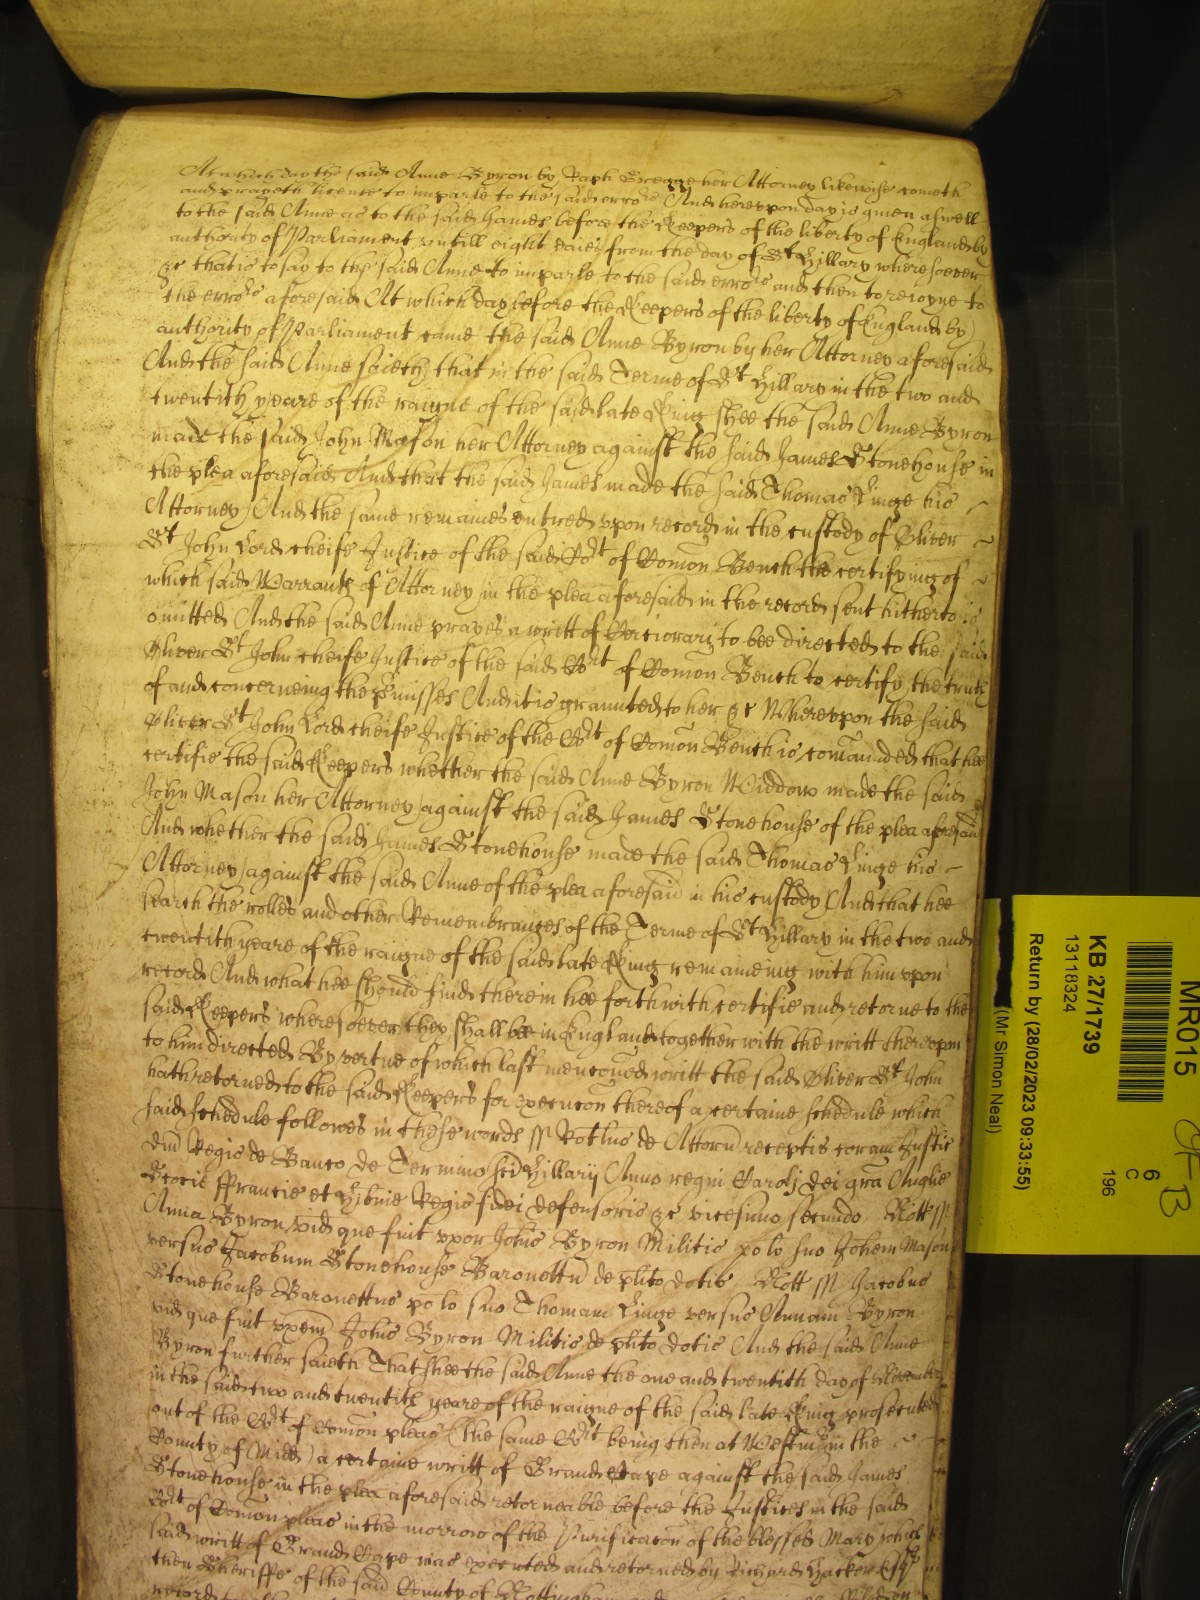 At which day the said Anne Byron by Raph Gregge her Attorney likewise cometh
and prayeth licence to imparle to the said errors And herevpon day is giuen aswell
to the said Anne as to the said James before the Keepers of the liberty of England by
authority of Parliament vntill eight daies from the day of St Hillary wheresoever
&c that is to say to the said Anne to imparle to the said errors and then to reioyne to
the errors aforesaid At which day before the Keepers of the liberty of England by
authority of Parliament came the said Anne Byron by her Attorney aforesaid
And the said Anne saieth that in the said Terme of St Hillary in the two and
twentith yeare of the raigne of the said late King shee the said Anne Byron
made the said John Mason her Attorney against the said James Stonehouse in
the plea aforesaid And that the said James made the said Thomas Linge his
Attorney And the same remaines entred vpon record in the custody of Oliver
St John Lord cheife Justice of the said Cort of Comon Bench the certifying of
which said Warrants of Attorney in the plea aforesaid in the record sent hitherto is
omitted And the said Anne prayes a writt of Certiorari to bee directed to the said
Oliver St John cheife Justice of the said Cort of Comon Bench to certify the truth
of and concerneing the pmisses And it is graunted to her &c Wherevpon the said
Oliver St John Lord cheife Justice of the Cort of Comon Bench is comanded that hee
certifie the said Keepers whether the said Anne Byron Widdow made the said
John Mason her Attorney against the said James Stonehouse of the plea aforesaid
And whether the said James Stonehouse made the said Thomas Linge his
Attorney against the said Anne of the plea aforesaid in his custody And that hee
search the rolles and other Remembrances of the Terme of St Hillary in the two and
twentith yeare of the raigne of the said late King remaineing with him vpon
record And what hee should find therein hee forthwith certifie and retorne to the
said Keepers wheresoever they shall bee in England together with the writt therevpon
to him directed By vertue of which last menconed writt the said Oliver St John
hath retorned to the said Keepers for execucon thereof a certaine schedule which
said schedule followes in these words ss Rotlus de Attorn receptis coram Justic
Dni Regis de Banco de Termino sci Hillarij Anno regni Caroli dei gra Anglie
Scocie ffrancie et Hibnie Regis fidei defensoris &c vicesimo secundo Nott ss
Anna Byron vid que fuit vxor Johis Byron Militis po lo suo Johem Mason
versus Jacobum Stonehouse Baronettu de plito dotis Nott ss Jacobus
Stonehouse Baronettus po lo suo Thomam Linge versus Annam Byron
vid que fuit vxem Johis Byron Militis de plito dotis And the said Anne
Byron further saieth That shee the said Anne the one and twentith day of November
in the said two and twentith yeare of the raigne of the said late King prosecuted
out of the Cort of Comon pleas (the same Cort being then at Westmr in the
County of Midd) a certaine writt of Grand Cape against the said James
Stonehouse in the plea aforesaid retorneable before the Justices in the said
Cort of Comon pleas in the morrow of the Purificacon of the blessed Mary which
said writt of Grand Cape was executed and retorned by Richard Hacker Esqr
then Sheriffe of the said County of Nottingham and
MR015
6
C
196
KB 27/1739
13118324
Return by (28/02/2023 09:33:55)
(Mr Simon Neal)